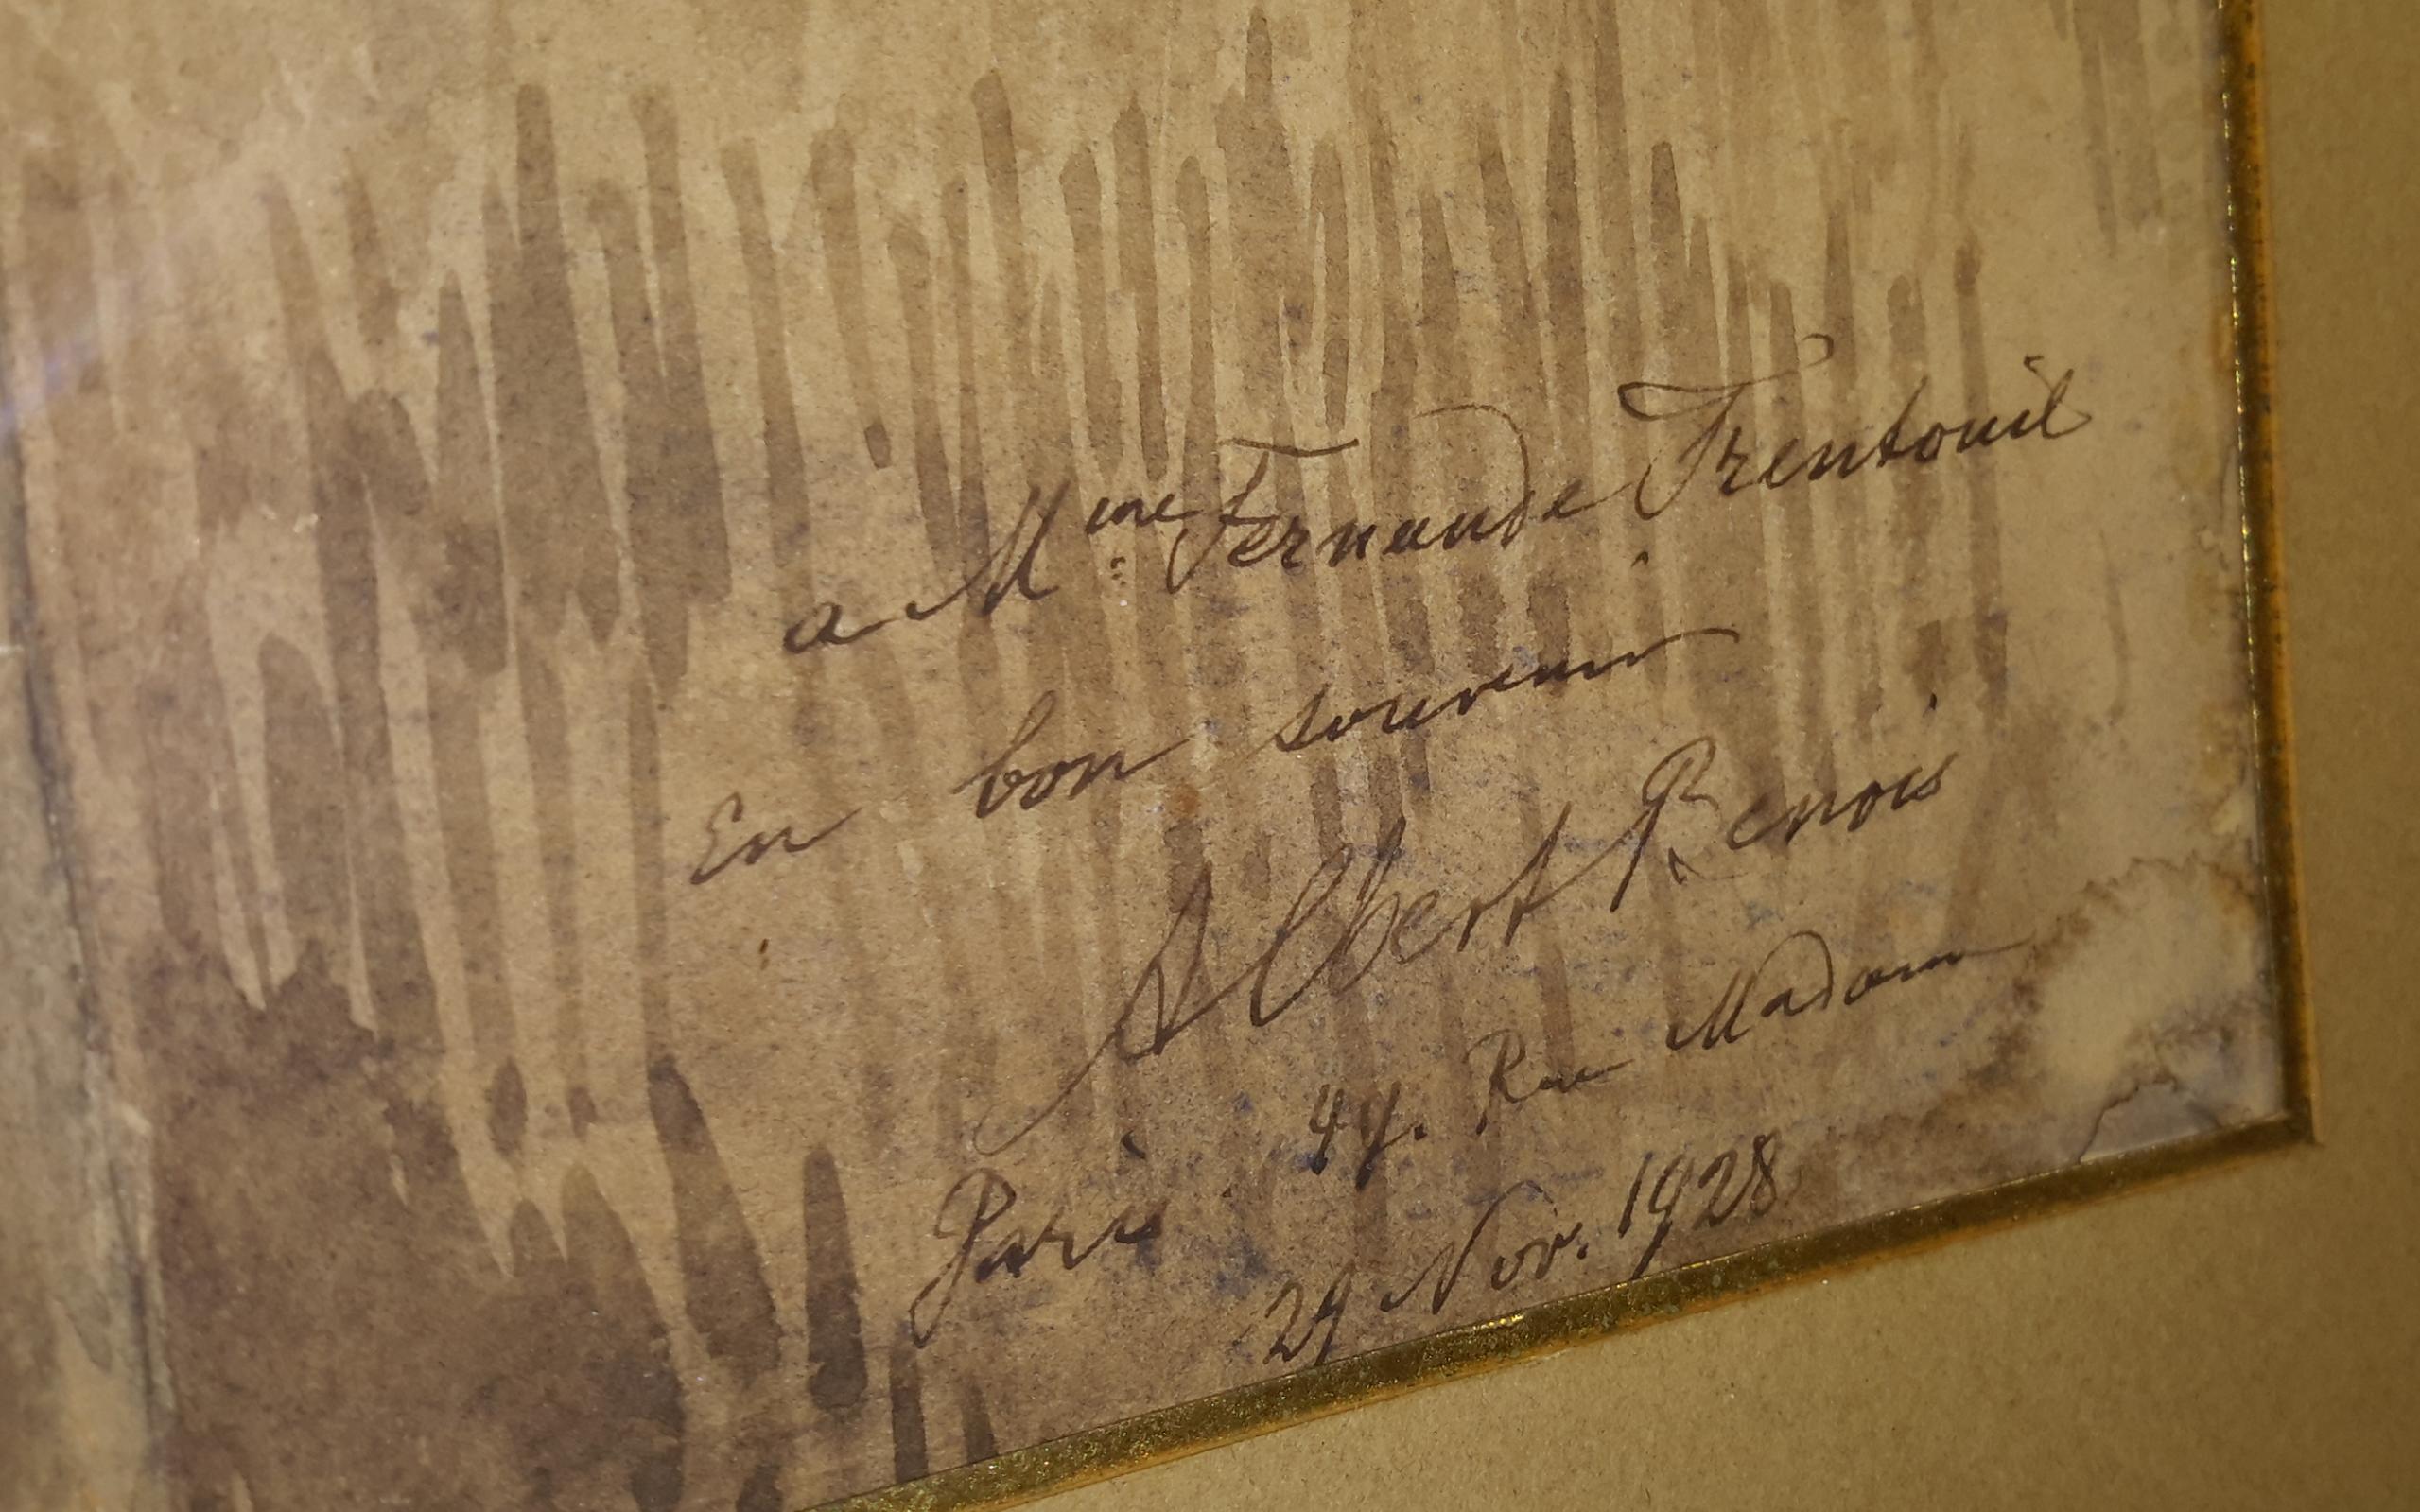 a Mme Fernande
En bon souvenir
Albert Benois
Paris 44. Rue Madame
29 Nov. 1928